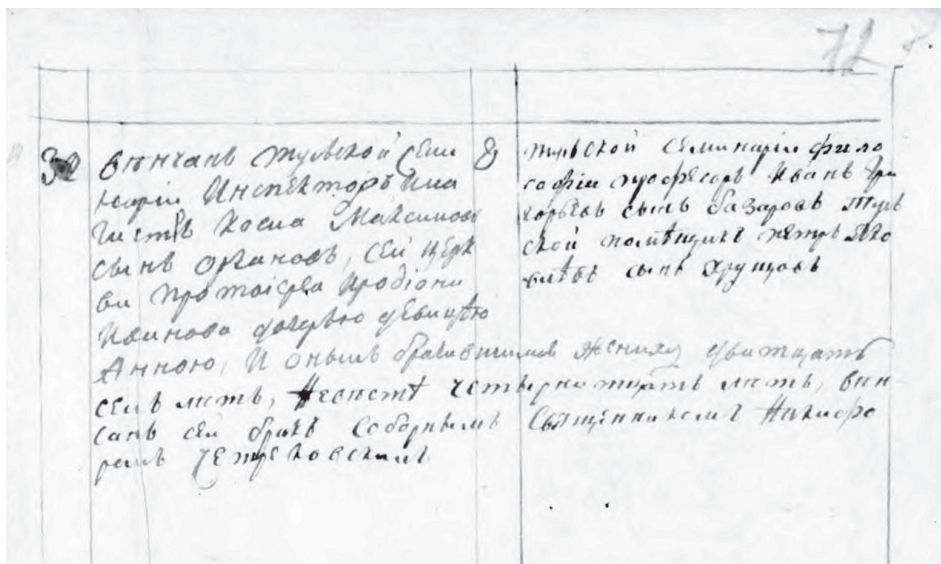 72
30 вѣнчанъ тульской семи
нарiи Инспекторъ Ма
гистръ Косма Максимовъ
сынъ Органовъ, сей церк
ви протоiерея Иродiона
Иванова дочерью девицею
Анною, И онымъ брачившимся жениху дватцать
семь лѣтъ, Невестѣ четырнатцать лѣтъ, впи
санъ сей бракъ Соборнымъ Священникомъ Никифо
ромъ
8 тульской семинарiи фило
софiи профессоръ Иванъ Гри
горьевъ сынъ базаровъ туль
ской помѣщикъ петръ Яко
влевъ сынъ Хрущовъ